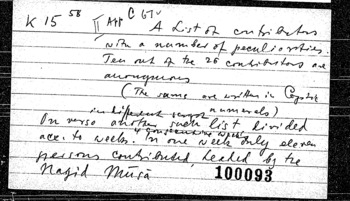 K 15 58 APP C 61
A List of contributors
with a number of peculiarities.
Ten out of the 26 contributors are
anonymous
(The sums are written in Coptic
numerals)
in different script
On verso another such list divided
acc. to weeks. In one week only eleven
4 consecutive weeks
persons contributed, headed by the
Nagid Musa
100093